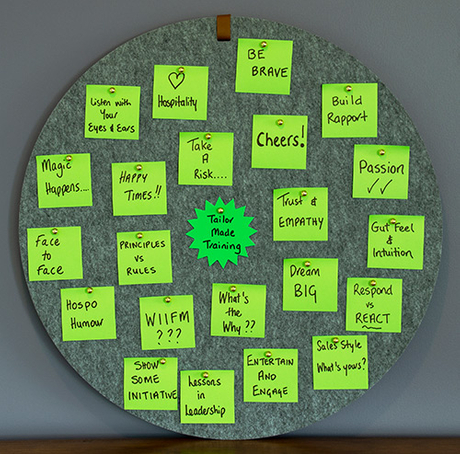 BE
BRAVE
♡
Hospitality
Listen with
Your
Eyes & Ears
Build
Rapport
Take
A
Risk....
Cheers!
Magic
Happens....
HAPPY
TIMES!!
Passion
✓✓
Trust &
EMPATHY
Tailor
Made
Training
Gut Feel
&
Intuition
Face
to
Face
PRINCIPLES
VS
RULES
Dream
BIG
Respond
vs
REACT
Hospo
Humour
WIIFM
???
What's
the
Why??
Sales Style
What's yours?
SHOW
SOME
INITIATIVE
Lessons
in
Leadership
ENTERTAIN
AND
ENGAGE